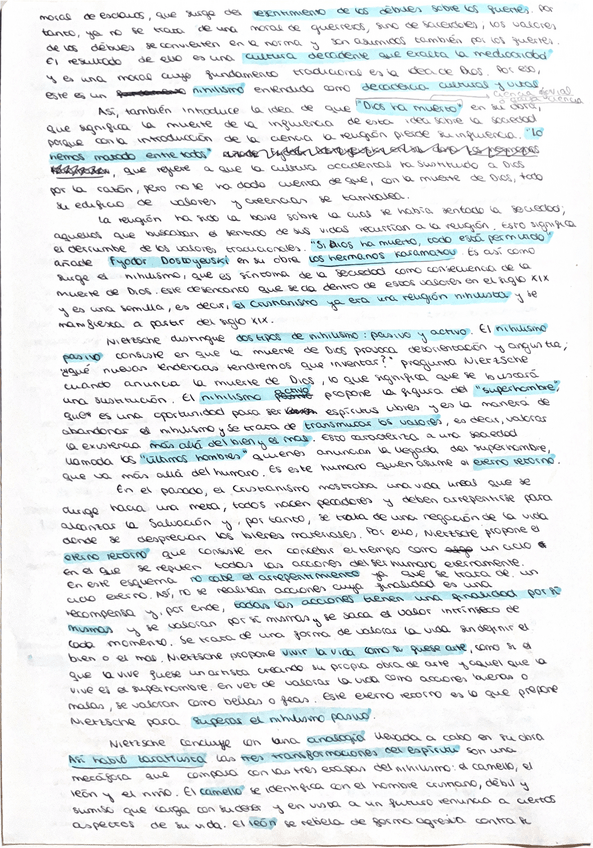 moral de esclavos, que surge del resentimiento de los débiles sobre los fuertes. Por
tanto, ya no se trata de una moral de guerreros, sino de sacerdotes, los valores
de los débiles se convierten en la norma y son asumidos también por los fuertes.
El resultado de ello es una cultura decadente que exalta la mediocridad
y es una moral cuyo fundamento tradicional es la idea de Dios. Por eso,
este es un nihilismo entendido como decadencia cultural y vital
Así, también introduce la idea de que "Dios ha muerto" en su obra,
que significa la muerte de la influencia de esta idea sobre la sociedad
porque con la introducción de la ciencia la religión pierde su influencia. "lo
hemos matado entre todos"
, que refiere a que la cultura occidental ha sustituido a Dios
por la razón, pero no se ha dado cuenta de que, con la muerte de Dios, todo
su edificio de valores y creencias se tambalea.
La religión ha sido la base sobre la cual se había sentado la sociedad;
aquellos que buscaban el sentido de sus vidas recurrían a la religión. Esto significa
el derrumbe de los valores tradicionales. "Si Dios ha muerto, todo está permitido"
añade Fyodor Dostoyevski en su obra los hermanos Karamazov. Es así como
surge el nihilismo, que es síntoma de la sociedad como consecuencia de la
muerte de Dios. Este desencanto que se da dentro de estos valores en el siglo XIX
y es una semilla, es decir, el Cristianismo ya era una religión nihilista y se
manifiesta a partir del siglo XIX.
Nietzsche distingue dos tipos de nihilismo: pasivo y activo. El nihilismo
pasivo consiste en que la muerte de Dios provoca desorientación y angustia;
"¿qué nuevas tendencias tendremos que inventar?" pregunta Nietzsche
cuando anuncia la muerte de Dios, lo que significa que se buscará
una sustitución. El nihilismo activo propone la figura del "superhombre",
que es una oportunidad para ser espíritus libres y es la manera de
abandonar el nihilismo y se trata de transmutar los valores, es decir, valorar
la existencia más allá del bien y el mal. Esto caracteriza a una sociedad
llamada los "últimos hombres" quienes anuncian la llegada del superhombre,
que va más allá del humano. Es este humano quien asume el eterno retorno.
En el pasado, el Cristianismo mostraba una vida lineal que se
dirige hacia una meta, todos nacen pecadores y deben arrepentirse para
alcanzar la Salvación y, por tanto, se trata de una negación de la vida
dónde se desprecian los bienes materiales. Por ello, Nietzsche propone el
eterno retorno que consiste en concebir el tiempo como un ciclo
en el que se repiten todas las acciones del ser humano eternamente.
En este esquema no cabe el arrepentimiento ya que se trata de un
ciclo eterno. Así, no se realizan acciones cuya finalidad es una
recompensa y, por ende, todas las acciones tienen una finalidad por sí
mismas y se valoran por sí mismas y se saca el valor intrínseco de
cada momento. Se trata de una forma de valorar la vida sin definir el
bien o el mal. Nietzsche propone vivir la vida como si fuese arte, como si el
que la vive fuese un artista creando su propia obra de arte y aquel que la
vive es el superhombre. En vez de valorar la vida como acciones buenas o
malas, se valoran como bellas o feas. Este eterno retorno es lo que propone
Nietzsche para superar el nihilismo pasivo.
Nietzsche concluye con una analogía llevada a cabo en su obra
Así habló Zaratustra. Las tres transformaciones del espíritu son una
metáfora que compara con las tres etapas del nihilismo: el camello, el
león y el niño. El camello se identifica con el hombre cristiano, débil y
sumiso que carga con su deber y en vista a un futuro renuncia a ciertos
aspectos de su vida. El león se rebela de forma agresiva contra su